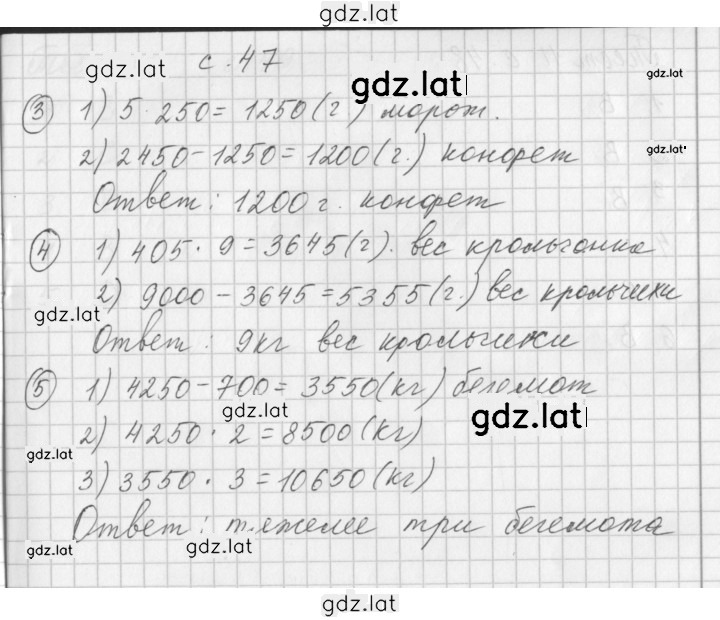 gdz.lat
с. 47
gdz.lat
gdz.lat
③ 1) 5 · 250 = 1250 (г) морож.
gdz.lat
2) 2450 - 1250 = 1200 (г.) конфет
Ответ: 1200 г. конфет
④ 1) 405 · 9 = 3645 (г). вес крольчонка
2) 9000 - 3645 = 5355 (г.) вес крольчихи
gdz.lat
Ответ: 9кг вес крольчихи
⑤ 1) 4250 - 700 = 3550 (кг) бегемот
gdz.lat
gdz.lat
2) 4250 · 2 = 8500 (кг)
gdz.lat
3) 3550 · 3 = 10650 (кг)
Ответ: тяжелее три бегемота
gdz.lat
gdz.lat
gdz.lat